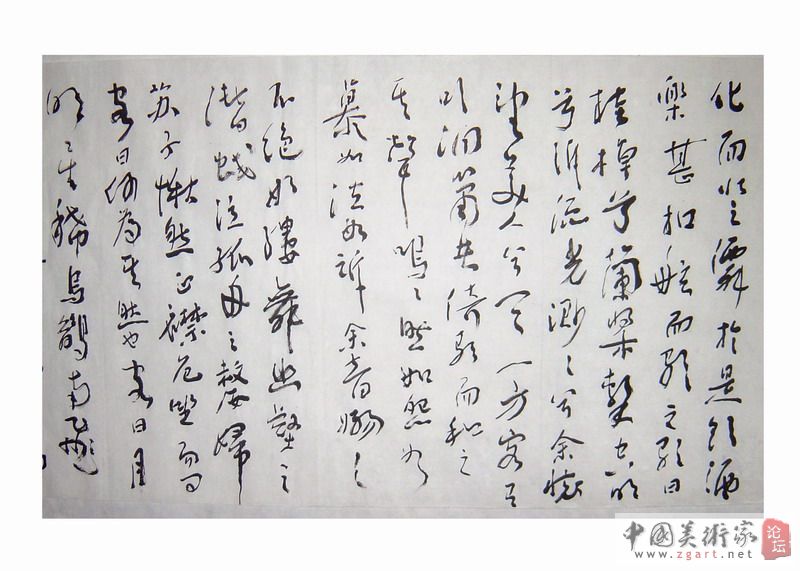 化而登僊於是飲酒
樂甚扣舷而歌之歌曰
桂棹兮蘭槳擊空明
兮泝流光渺々兮余懷
望美人兮天一方客有
吹洞簫者倚歌而和之
其聲嗚々然如怨如
慕如泣如訴余音嫋々
不絕如縷舞幽壑之
潛蛟泣孤舟之嫠婦
蘇子愀然正襟危坐而問
客曰何為其然也客曰月
明星稀烏鵲南飛
中國美術家
论坛
www.zgart.net